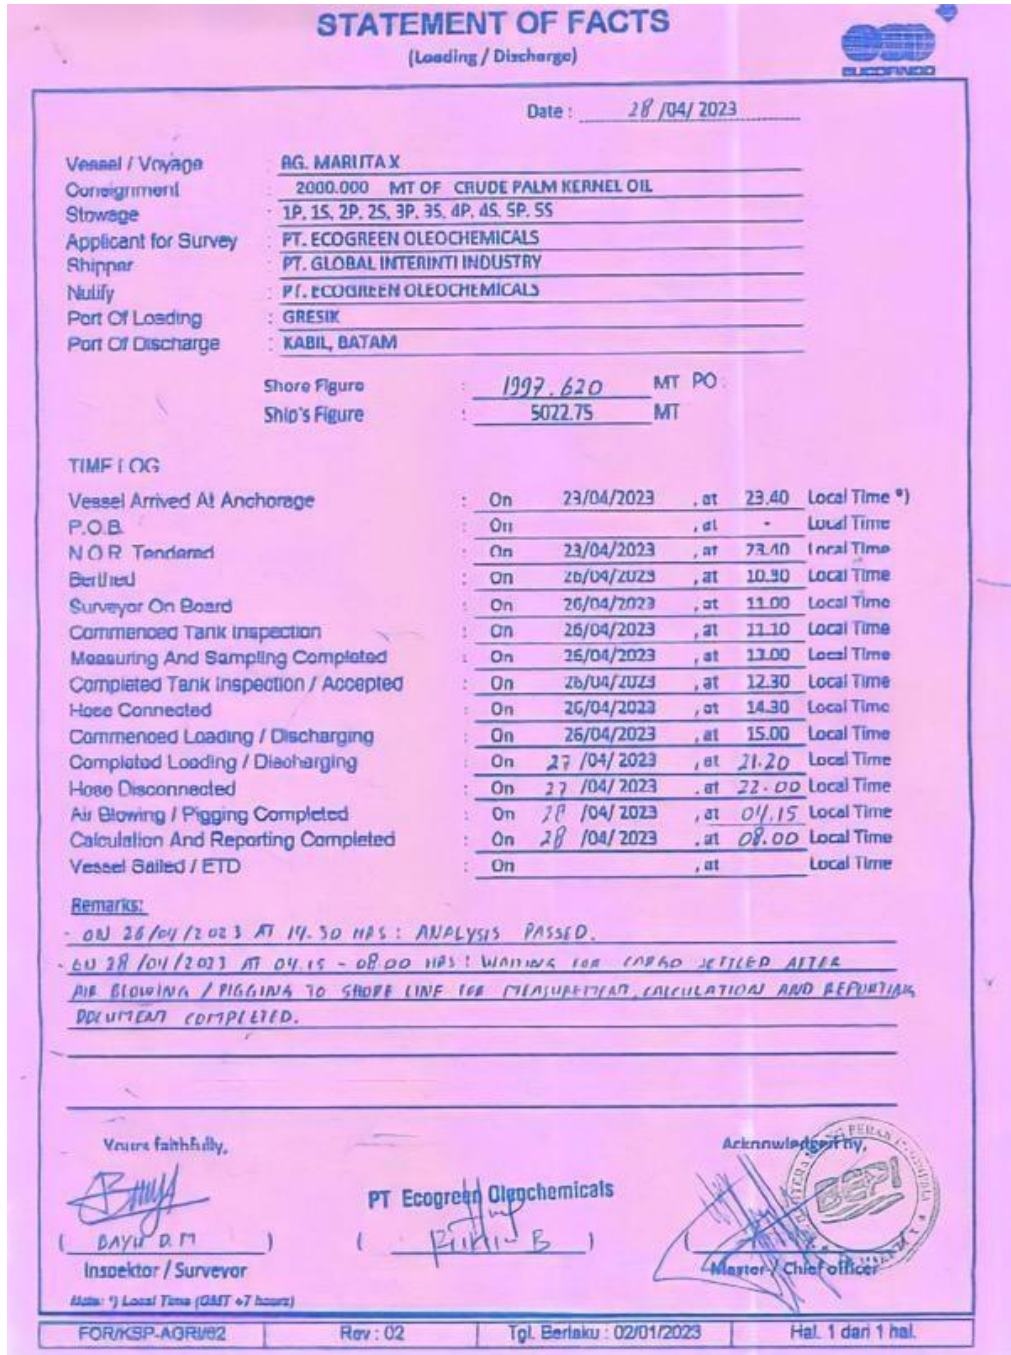 STATEMENT OF FACTS
(Loading / Discharge)
SUCOFINDO
Date : 28 /04/ 2023
Vessel / Voyage BG. MARUTA X
Consignment : 2000.000 MT OF CRUDE PALM KERNEL OIL
Stowage : 1P. 1S, 2P. 2S, 3P. 3S, 4P. 4S, 5P. 5S
Applicant for Survey : PT. ECOGREEN OLEOCHEMICALS
Shipper : PT. GLOBAL INTERINTI INDUSTRY
Notify : PT. ECOGREEN OLEOCHEMICALS
Port Of Loading : GRESIK
Port Of Discharge : KABIL, BATAM
Shore Figure : 1997.620 MT PO :
Ship's Figure : 5022.75 MT
TIME LOG
Vessel Arrived At Anchorage : On 23/04/2023 , at 23.40 Local Time *)
P.O.B. : On , at - Local Time
N.O.R Tendered : On 23/04/2023 , at 23.40 Local Time
Berthed : On 26/04/2023 , at 10.30 Local Time
Surveyor On Board : On 26/04/2023 , at 11.00 Local Time
Commenced Tank Inspection : On 26/04/2023 , at 11.10 Local Time
Measuring And Sampling Completed : On 26/04/2023 , at 13.00 Local Time
Completed Tank Inspection / Accepted : On 26/04/2023 , at 12.30 Local Time
Hose Connected : On 26/04/2023 , at 14.30 Local Time
Commenced Loading / Discharging : On 26/04/2023 , at 15.00 Local Time
Completed Loading / Discharging : On 27 /04/ 2023 , at 21.20 Local Time
Hose Disconnected : On 27 /04/ 2023 , at 22.00 Local Time
Air Blowing / Pigging Completed : On 28 /04/ 2023 , at 04.15 Local Time
Calculation And Reporting Completed : On 28 /04/ 2023 , at 08.00 Local Time
Vessel Sailed / ETD : On , at Local Time
Remarks:
- ON 26/04/2023 AT 14.30 HRS : ANALYSIS PASSED.
- ON 28/04/2023 AT 04.15 - 08.00 HRS : WAITING FOR CARGO SETTLED AFTER
AIR BLOWING / PIGGING TO SHORE LINE FOR MEASUREMENT, CALCULATION AND REPORTING
DOCUMENT COMPLETED.
Yours faithfully, Acknowledged by,
PT Ecogreen Oleochemicals
( BAYU D. M ) ( B ) (
Inspektor / Surveyor Master / Chief officer
Note: *) Local Time (GMT +7 hours)
FOR/KSP-AGRI/02 Rev : 02 Tgl. Berlaku : 02/01/2023 Hal. 1 dari 1 hal.